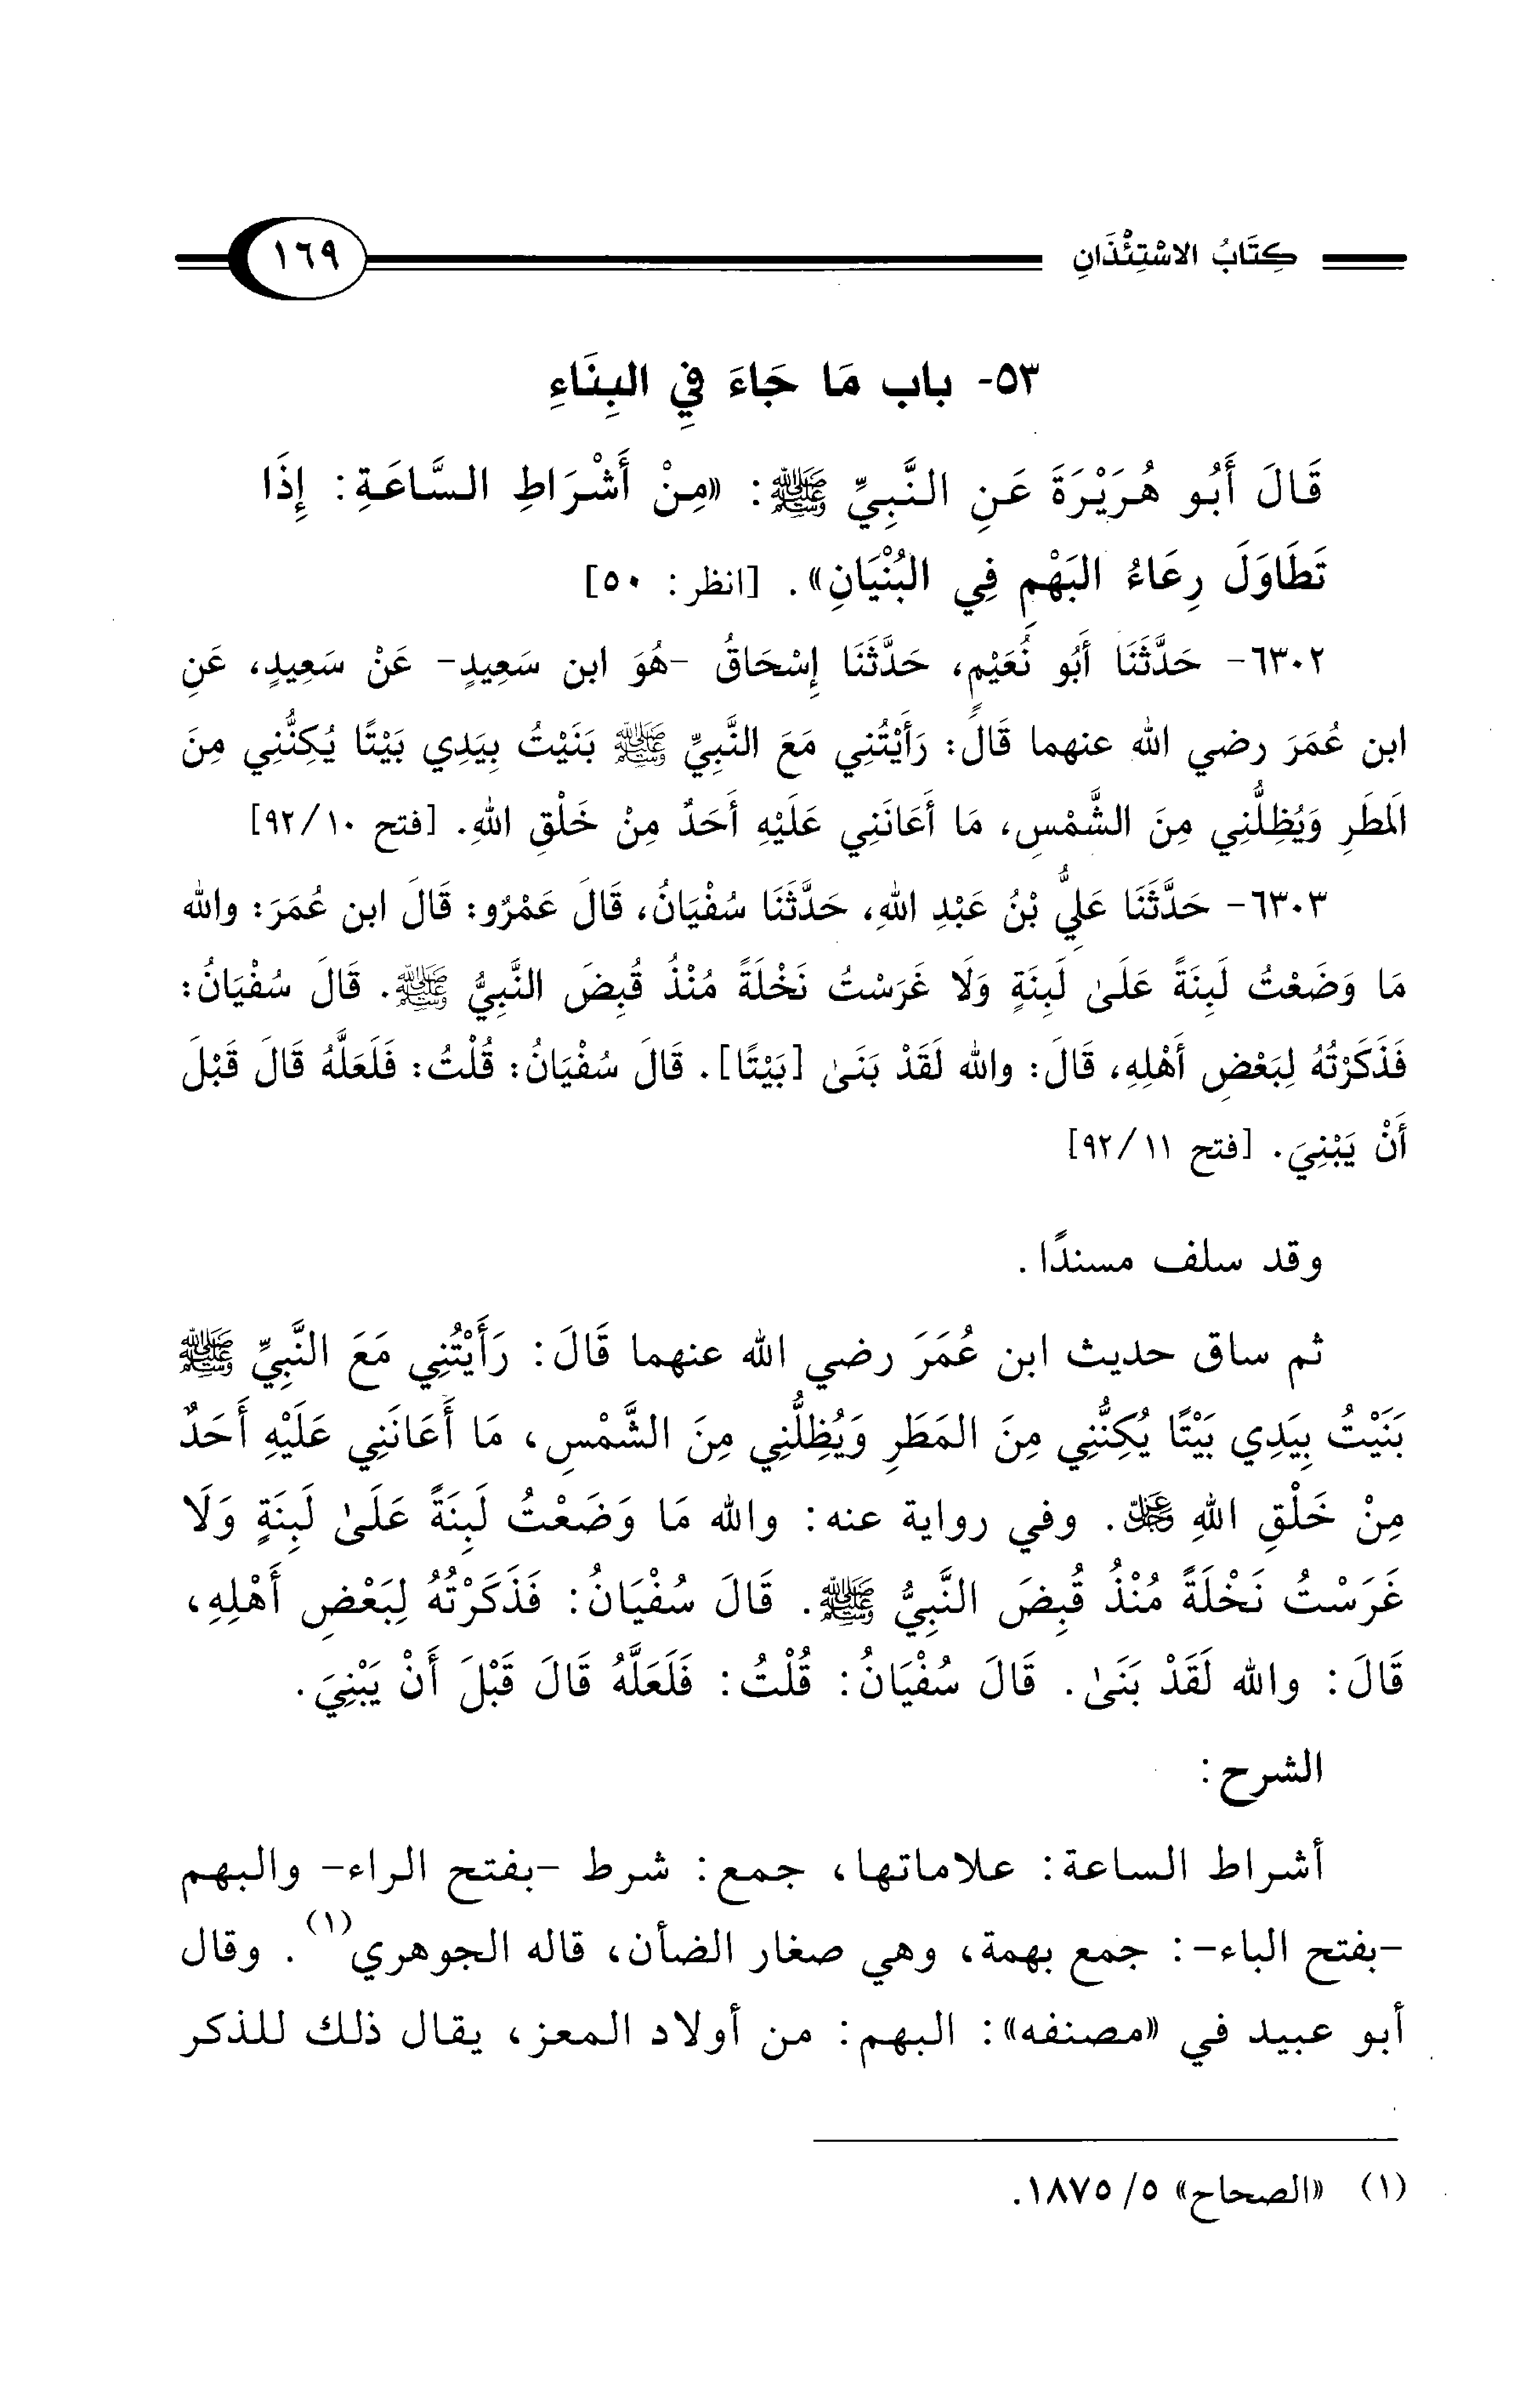 كِتَابُ الاسْتِئْذَانِ ١٦٩
٥٣- باب مَا جَاءَ فِي البِنَاءِ
قَالَ أَبُو هُرَيْرَةَ عَنِ النَّبِيِّ ﷺ: «مِنْ أَشْرَاطِ السَّاعَةِ: إِذَا
تَطَاوَلَ رِعَاءُ البَهْمِ فِي البُنْيَانِ». [انظر: ٥٠]
٦٣٠٢- حَدَّثَنَا أَبُو نُعَيْمٍ، حَدَّثَنَا إِسْحَاقُ -هُوَ ابن سَعِيدٍ- عَنْ سَعِيدٍ، عَنِ
ابن عُمَرَ رضي الله عنهما قَالَ: رَأَيْتُنِي مَعَ النَّبِيِّ ﷺ بَنَيْتُ بِيَدِي بَيْتًا يُكِنُّنِي مِنَ
المَطَرِ وَيُظِلُّنِي مِنَ الشَّمْسِ، مَا أَعَانَنِي عَلَيْهِ أَحَدٌ مِنْ خَلْقِ اللهِ. [فتح ٩٢/١٠]
٦٣٠٣- حَدَّثَنَا عَلِيُّ بْنُ عَبْدِ اللهِ، حَدَّثَنَا سُفْيَانُ، قَالَ عَمْرٌو: قَالَ ابن عُمَرَ: والله
مَا وَضَعْتُ لَبِنَةً عَلَىٰ لَبِنَةٍ وَلَا غَرَسْتُ نَخْلَةً مُنْذُ قُبِضَ النَّبِيُّ ﷺ. قَالَ سُفْيَانُ:
فَذَكَرْتُهُ لِبَعْضِ أَهْلِهِ، قَالَ: والله لَقَدْ بَنَىٰ [بَيْتًا]. قَالَ سُفْيَانُ: قُلْتُ: فَلَعَلَّهُ قَالَ قَبْلَ
أَنْ يَبْنِيَ. [فتح ٩٢/١١]
وقد سلف مسندًا.
ثم ساق حديث ابن عُمَرَ رضي الله عنهما قَالَ: رَأَيْتُنِي مَعَ النَّبِيِّ ﷺ
بَنَيْتُ بِيَدِي بَيْتًا يُكِنُّنِي مِنَ المَطَرِ وَيُظِلُّنِي مِنَ الشَّمْسِ، مَا أَعَانَنِي عَلَيْهِ أَحَدٌ
مِنْ خَلْقِ اللهِ ﷻ. وفي رواية عنه: والله مَا وَضَعْتُ لَبِنَةً عَلَىٰ لَبِنَةٍ وَلَا
غَرَسْتُ نَخْلَةً مُنْذُ قُبِضَ النَّبِيُّ ﷺ. قَالَ سُفْيَانُ: فَذَكَرْتُهُ لِبَعْضِ أَهْلِهِ،
قَالَ: والله لَقَدْ بَنَىٰ. قَالَ سُفْيَانُ: قُلْتُ: فَلَعَلَّهُ قَالَ قَبْلَ أَنْ يَبْنِيَ.
الشرح:
أشراط الساعة: علاماتها، جمع: شرط -بفتح الراء- والبهم
-بفتح الباء-: جمع بهمة، وهي صغار الضأن، قاله الجوهري(١). وقال
أبو عبيد في «مصنفه»: البهم: من أولاد المعز، يقال ذلك للذكر
(١) «الصحاح» ٥/ ١٨٧٥.